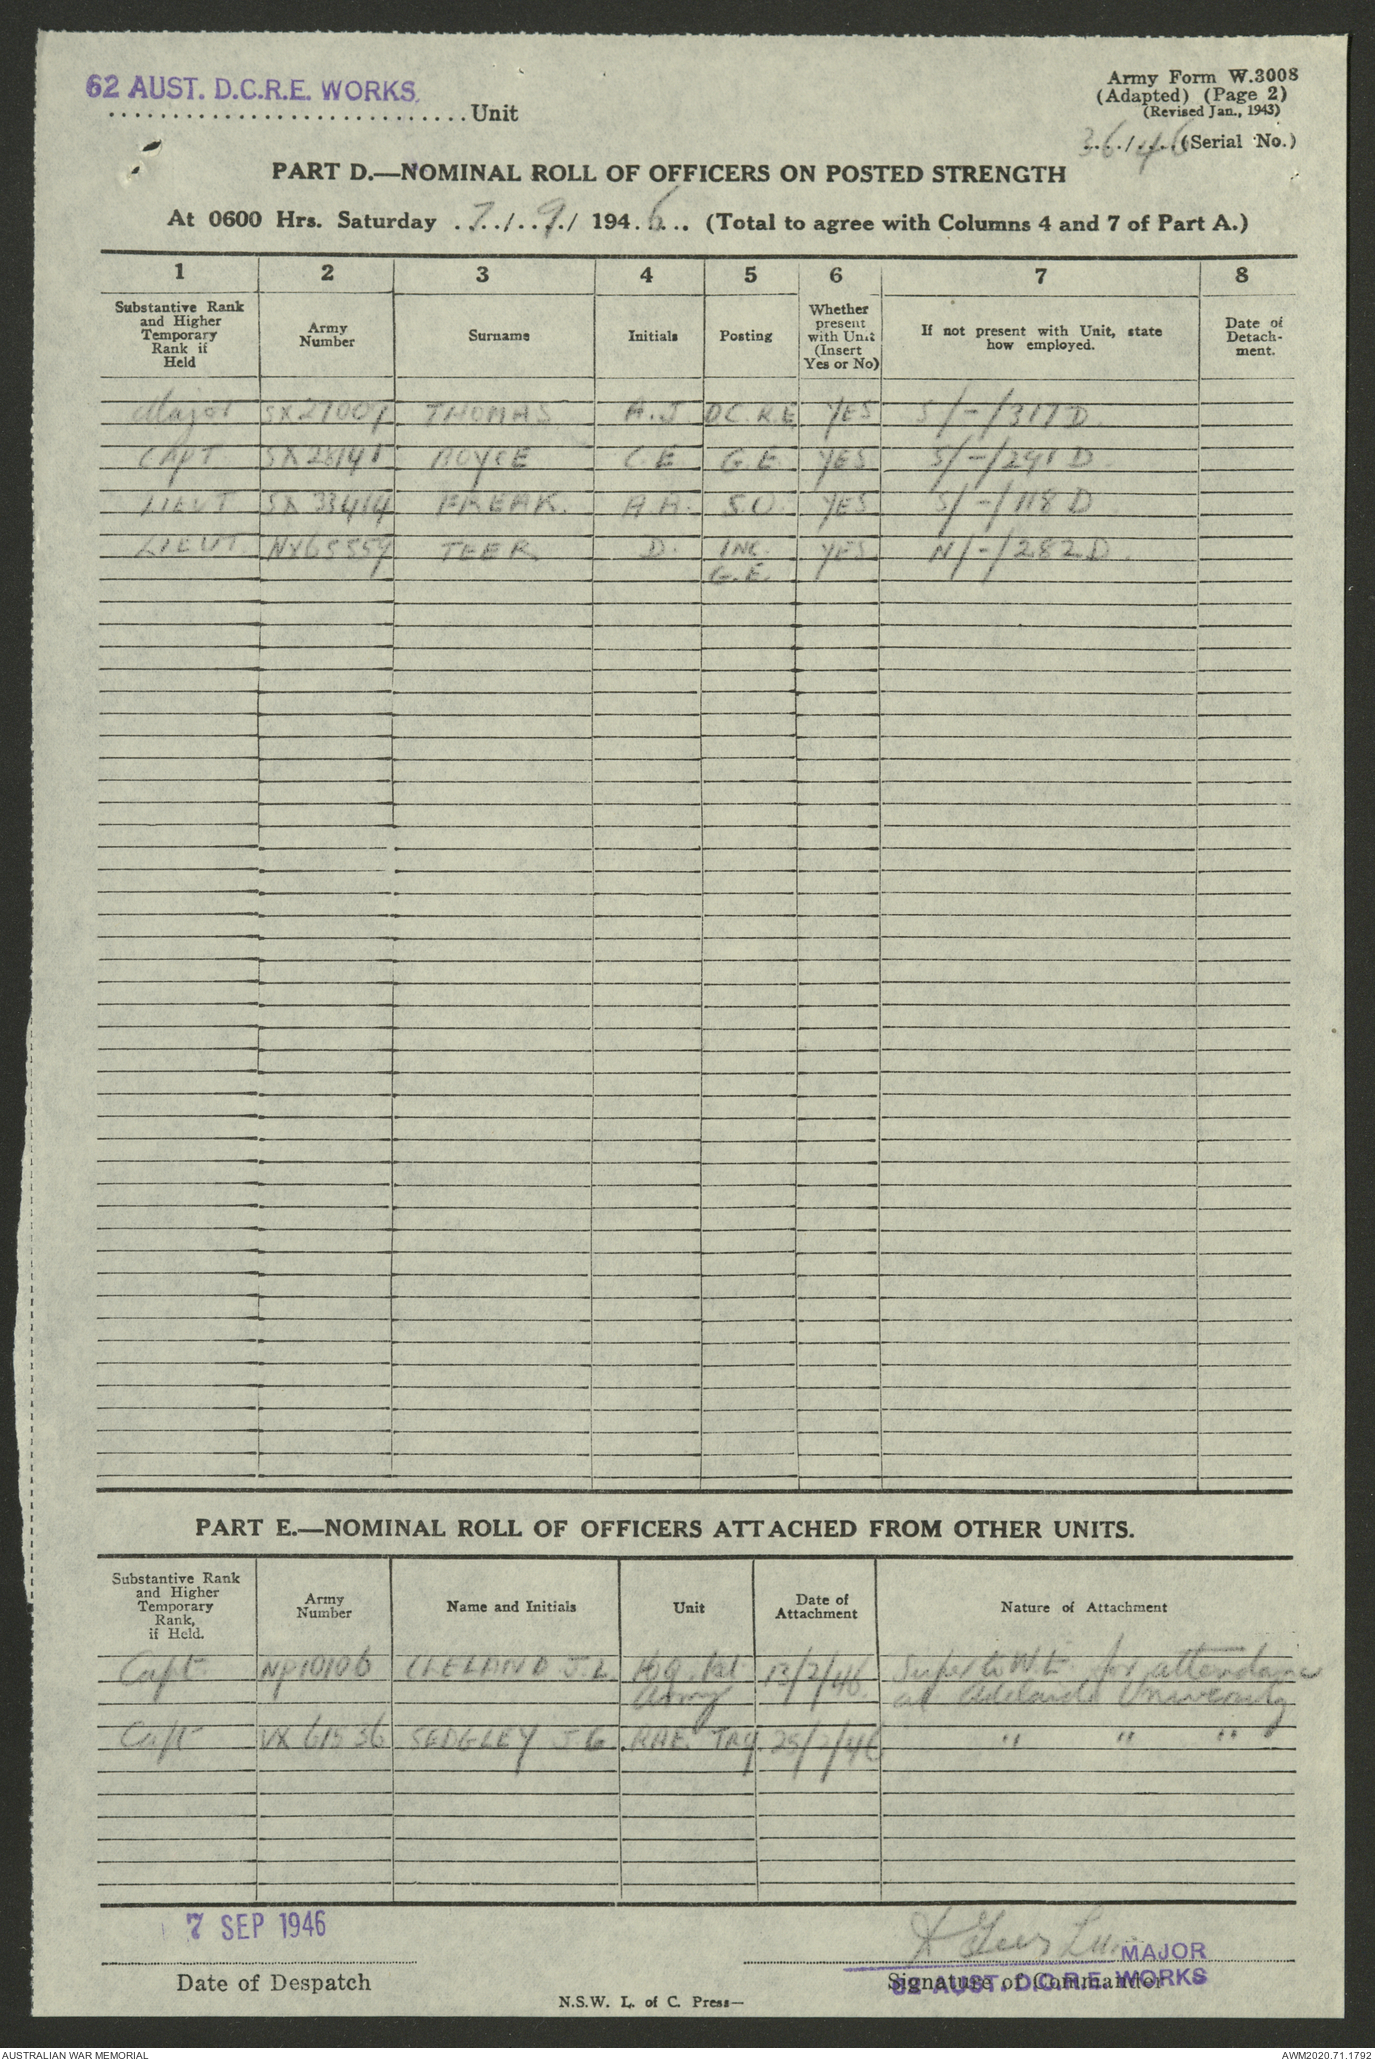 62 AUST. D.C.R.E. WORKS.
Unit
Army Form W.3008
(Adapted) (Page 2)
(Revised Jan., 1943)
36/46 (Serial No.)
PART D.—NOMINAL ROLL OF OFFICERS ON POSTED STRENGTH
At 0600 Hrs. Saturday 7/9/1946 (Total to agree with Columns 4 and 7 of Part A.)
1 2 3 4 5 6 7 8
Substantive Rank and Higher Temporary Rank if Held
Army Number
Surname
Initials
Posting
Whether present with Unit (Insert Yes or No)
If not present with Unit, state how employed.
Date of Detach-ment.
Major SX27007 THOMAS A.J DC.R.E YES S/-/317D
CAPT. SX28141 ROYCE C.E G.E. YES S/-/291 D
LIEUT SX33414 FREAK. A.A. S.O. YES S/-/118 D
LIEUT NX65559 TEER D. INC. YES N/-/282D.
G.E.
PART E.—NOMINAL ROLL OF OFFICERS ATTACHED FROM OTHER UNITS.
Substantive Rank and Higher Temporary Rank, if Held.
Army Number
Name and Initials
Unit
Date of Attachment
Nature of Attachment
Capt. NP10106 CLELAND J.L HQ. 1st 13/2/46. Super to W.E. for attendance
Army at Adelaide University
Capt VX61536 SEDGLEY J.G RAE. 25/2/46 " " "
7 SEP 1946
MAJOR
Date of Despatch
Signature of Commander
62 AUST. D.C.R.E. WORKS
N.S.W. L. of C. Press—
AUSTRALIAN WAR MEMORIAL
AWM2020.71.1792